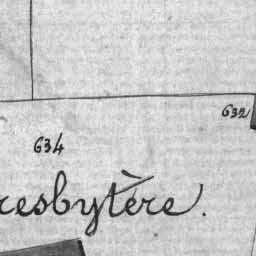 632
634
resbytère.